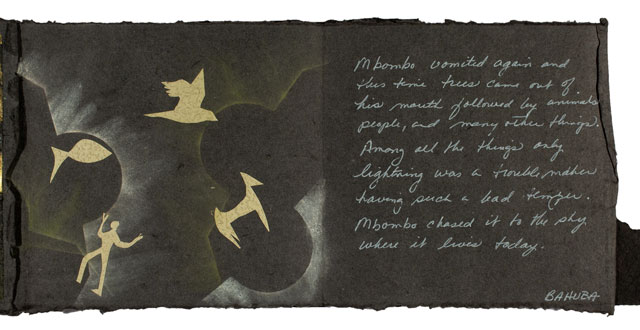 Mbombo vomited again and
this time trees came out of
his mouth followed by animals
people, and many other things.
Among all the things only
lightning was a trouble maker
having such a bad temper.
Mbombo chased it to the sky
where it lives today.
BAHUBA